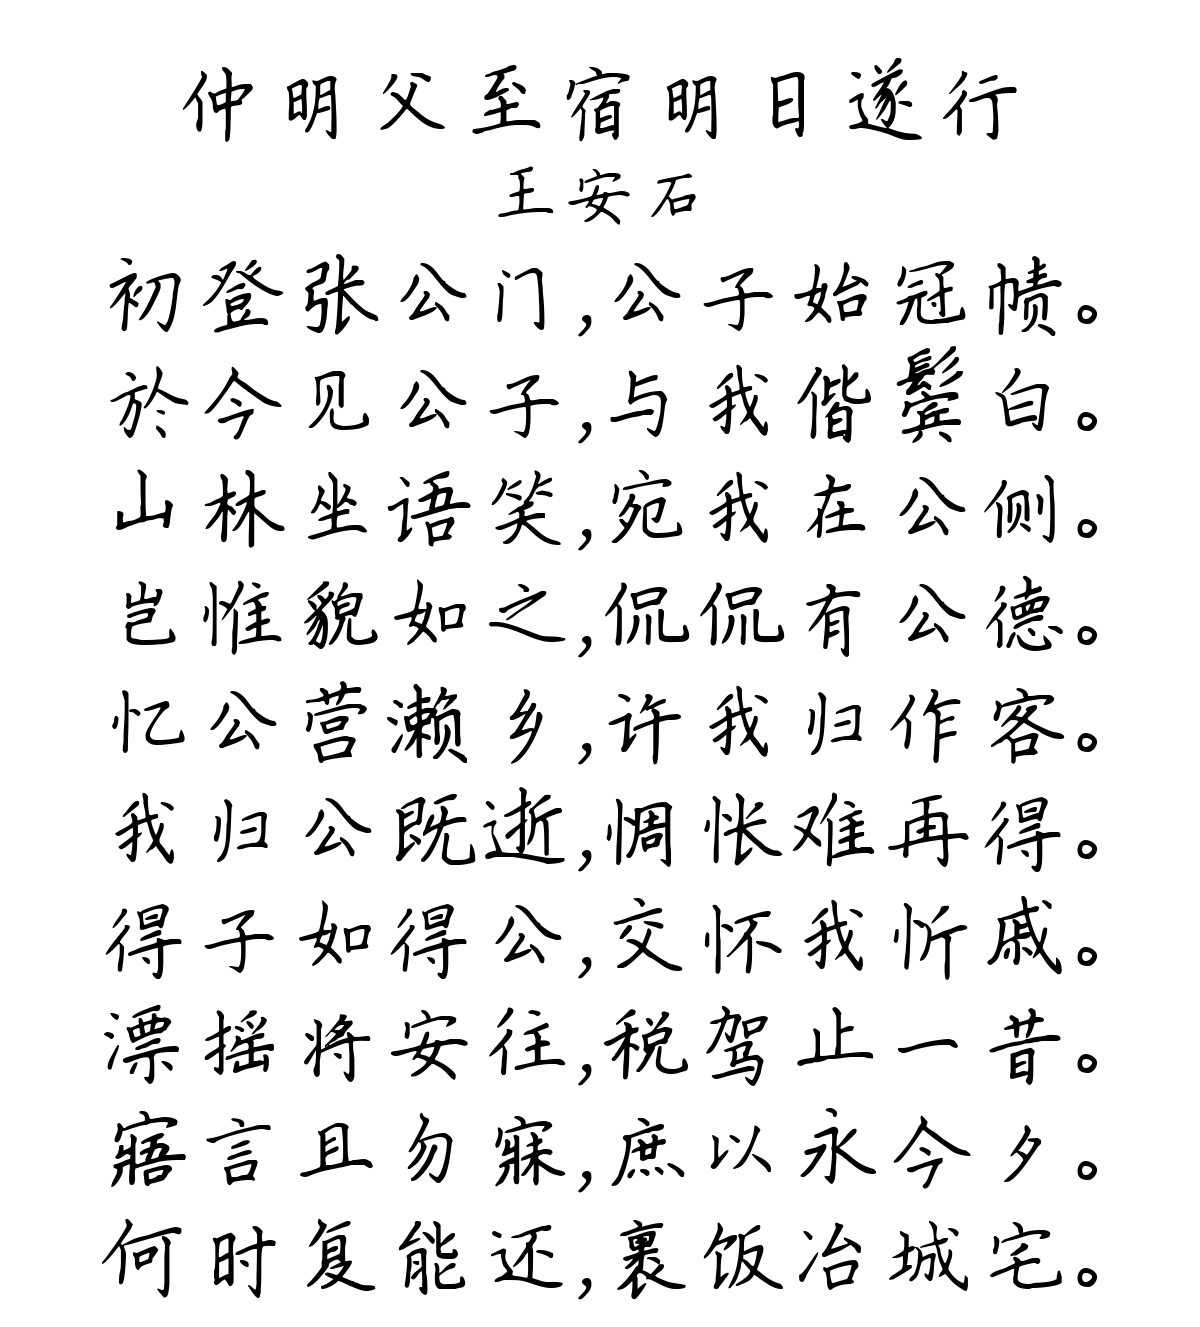 仲明父至宿明日遂行
王安石
初登张公门,公子始冠帻。
於今见公子,与我偕鬓白。
山林坐语笑,宛我在公侧。
岂惟貌如之,侃侃有公德。
忆公营濑乡,许我归作客。
我归公既逝,惆怅难再得。
得子如得公,交怀我忻戚。
漂摇将安往,税驾止一昔。
寤言且勿寐,庶以永今夕。
何时复能还,裹饭冶城宅。